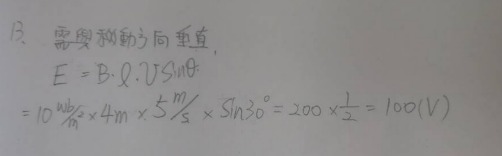 13. 需與移動方向垂直,
E = B·l·v Sinθ
= 10 wb/m² × 4m × 5 m/s × Sin30° = 200 × 1/2 = 100(V)